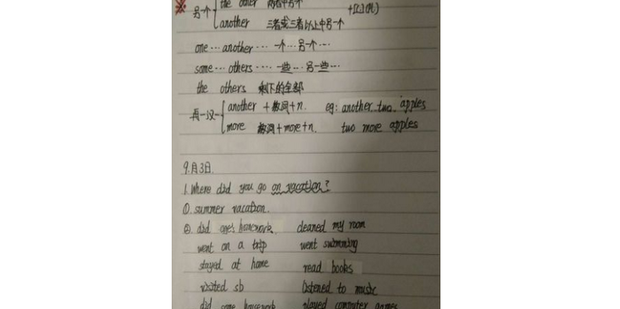 ※ 另个 { the other 两者中另个
another 三者或三者以上中另一个
one… another… 一个…另个…
some… others… 一些…另一些…
the others 剩下的全部
再一次 { another + 数词+n. eg: another two apples
more 数词+more+n. two more apples
9月3日.
1. Where did you go on vacation?
①. summer vacation.
②. did homework. cleaned my room
went on a trip went swimming
stayed at home read books
visited sb listened to music
did some housework played computer games